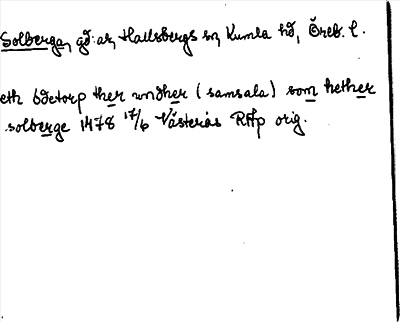 Solberga, gd:ar, Hallsbergs sn, Kumla hd, Öreb. l.
eth ödetorp ther wndher (samsala) som hether
solberge 1478 17/6 Västerås RAp orig.